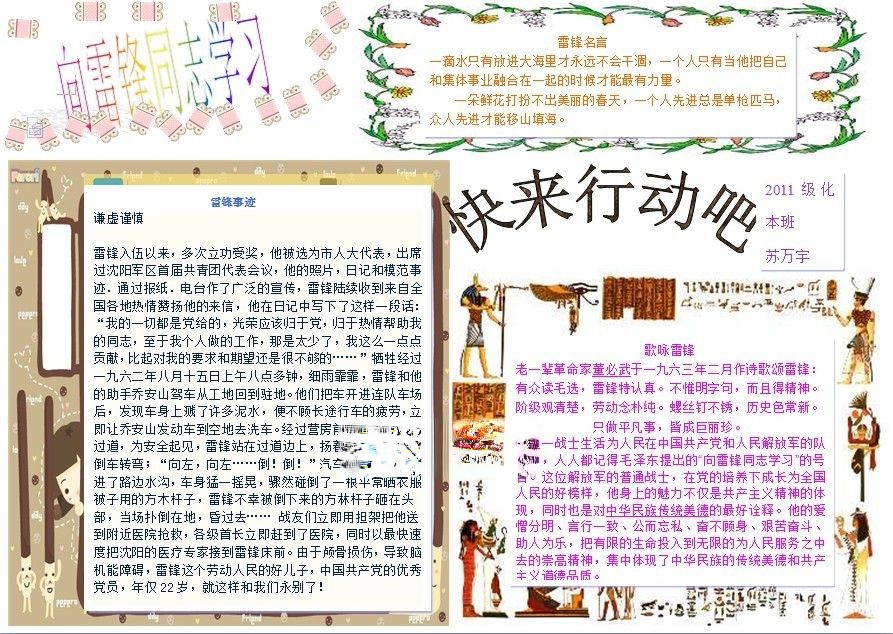 向雷锋同志学习
雷锋名言
一滴水只有放进大海里才永远不会干涸，一个人只有当他把自己
和集体事业融合在一起的时候才能最有力量。
一朵鲜花打扮不出美丽的春天，一个人先进总是单枪匹马，
众人先进才能移山填海。
快来行动吧
2011 级化
本班
苏万宇
雷锋事迹
谦虚谨慎
雷锋入伍以来，多次立功受奖，他被选为市人大代表，出席
过沈阳军区首届共青团代表会议，他的照片，日记和模范事
迹．通过报纸．电台作了广泛的宣传，雷锋陆续收到来自全
国各地热情赞扬他的来信，他在日记中写下了这样一段话：
“我的一切都是党给的，光荣应该归于党，归于热情帮助我
的同志，至于我个人做的工作，那是太少了，我这么一点点
贡献，比起对我的要求和期望还是很不够的……”牺牲经过
一九六二年八月十五日上午八点多钟，细雨霏霏，雷锋和他
的助手乔安山驾车从工地回到驻地。他们把车开进连队车场
后，发现车身上溅了许多泥水，便不顾长途行车的疲劳，立
即让乔安山发动车到空地去洗车。经过营房前
过道，为安全起见，雷锋站在过道边上，扬着
倒车转弯；“向左，向左……倒！倒！”汽车
进了路边水沟，车身猛一摇晃，骤然碰倒了一根平常晒衣服
被子用的方木杆子，雷锋不幸被倒下来的方林杆子砸在头
部，当场扑倒在地，昏过去…… 战友们立即用担架把他送
到附近医院抢救，各级首长立即赶到了医院，同时以最快速
度把沈阳的医疗专家接到雷锋床前。由于颅骨损伤，导致脑
机能障碍，雷锋这个劳动人民的好儿子，中国共产党的优秀
党员，年仅 22 岁，就这样和我们永别了！
歌咏雷锋
老一辈革命家董必武于一九六三年二月作诗歌颂雷锋：
有众读毛选，雷锋特认真。不惟明字句，而且得精神。
阶级观清楚，劳动念朴纯。螺丝钉不锈，历史色常新。
只做平凡事，皆成巨丽珍。
一战士生活为人民在中国共产党和人民解放军的队
，人人都记得毛泽东提出的“向雷锋同志学习”的号
。这位解放军的普通战士，在党的培养下成长为全国
人民的好榜样，他身上的魅力不仅是共产主义精神的体
现，同时也是对中华民族传统美德的最好诠释。他的爱
憎分明、言行一致、公而忘私、奋不顾身、艰苦奋斗、
助人为乐，把有限的生命投入到无限的为人民服务之中
去的崇高精神，集中体现了中华民族的传统美德和共产
主义道德品质。